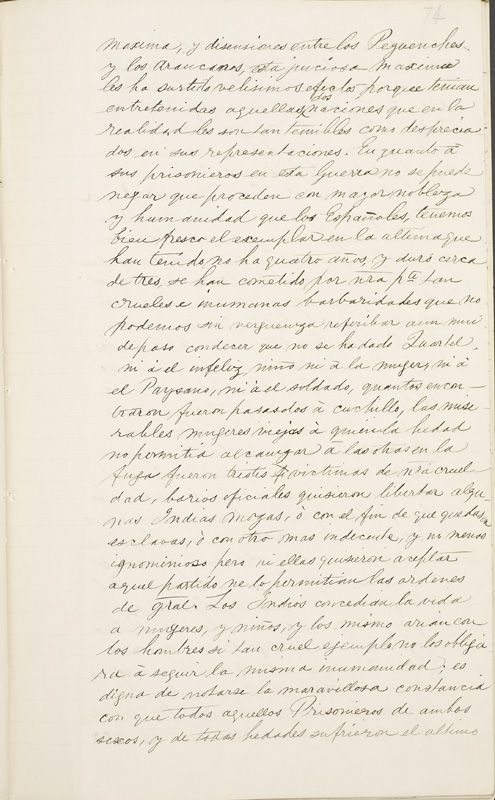 74
maxima, y disensiones entre los Peguenches
y los Araucanos, esta juiciosa maxima
les ha surtido velisimos efectos porque tenian
entretenidas aquellas dos naciones que en la
realidad les son tan temibles como desprecia-
dos en sus representaciones. En quanto à
sus prisioneros en esta Guerra no se puede
negar que proceden con mayor nobleza
y humanidad que los Españoles, tenemos
bien fresco el exemplar en la ultima que
han tenido no ha quatro años, y duró cerca
de tres, se han cometido por nra pte tan
crueles e inumanas barbaridades que no
podemos sin verguenza referirlas aun mui
de paso condecer que no se ha dado Quartel
ni à el infeliz niño ni à la muger, ni à
el Paysano, ni à el soldado, quantos encon-
traron fueron pasados à cuchillo, las mise-
rables mugeres viejas à quien la hedad
no permitia alcanzar à las otras en la
fuga fueron tristes victimas de nra cruel
dad, barios oficiales quisieron libertar algu
nas Indias mozas, ò con el fin de que quedasen
esclavas, ò con otro mas indecente, y no menos
ignominioso pero ni ellas quisieron aceptar
aquel partido ne lo permitian las ordenes
de gral. Los Indios concedian la vida
a mugeres, y niños, y los mismo arian con
los hombres si tan cruel ejemplo no los obliga
ra à seguir la misma inumanidad; es
digna de notarse la maravillosa constancia
con que todos aquellos Prisioneros de ambos
sexos, y de todas hedades sufrieron el ultimo